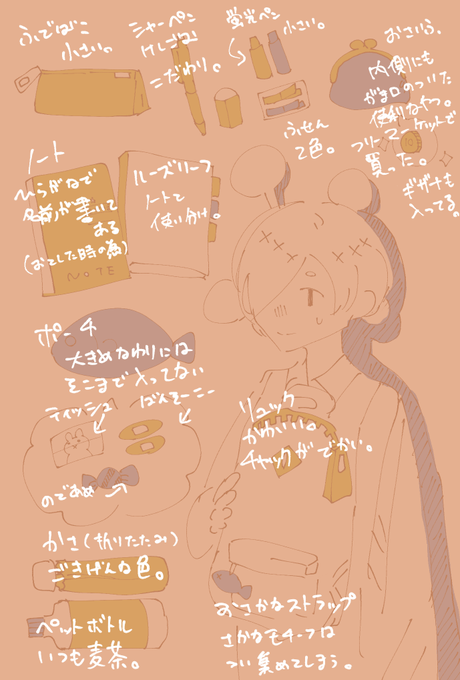 ふでばこ
小さい。
シャーペン
けしごむ
こだわり。
蛍光ペン
小さい。
ふせん
2色。
おさいふ。
内側にも
がま口のついた
便利なやつ。
フリーマーケットで
買った。
ギザ十も
入ってる。
ノート
ひらがなで
名前が書いて
ある
(おとした時の為)
NOTE
ルーズリーフ
ノートと
使い分け。
ポーチ
大きめなわりには
そこまで入ってない
ティッシュ
ばんそーこー
のどあめ
リュック
かわいい。
チャックがでかい。
かさ(折りたたみ)
ごきげんな色。
ペットボトル
いつも麦茶。
おさかなストラップ
さかなモチーフは
つい集めてしまう。